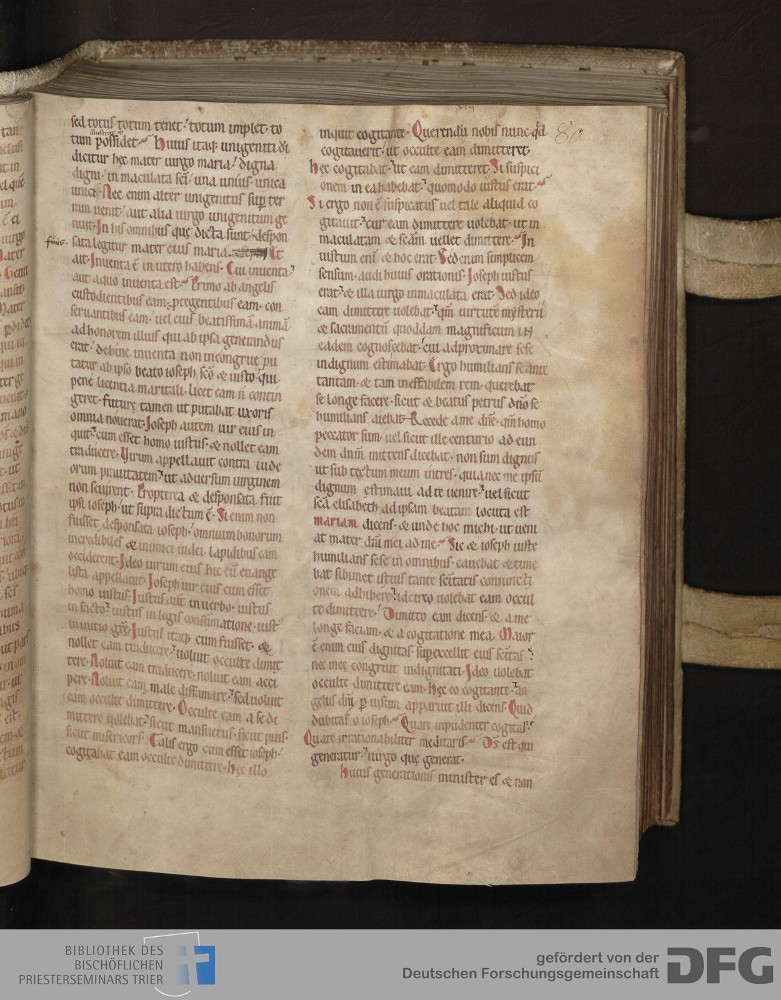 sed totus totum tenet, totum implet, to
tum possidet. Huius itaq; unigeniti di
dicitur hec mater uirgo maria, digna
digni, inmaculata sci, una unius, unica
unici. Nec enim alter unigenitus sup ter
ram uenit, aut alia uirgo unigenitum ge
nuit. In his omnibus que dicta sunt, despon
sata legitur mater eius maria. Et
ait. Inuenta e in utero habens. Cui inuenta?
aut a quo inuenta est? Primo ab angelis
custodientibus eam, ptegentibus eam, con
seruantibus eam, uel eius beatissimā animā
ad honorem illius qui ab ipsa generandus
erat, dehinc inuenta non incongrue pu
tatur ab ipso beato ioseph sco & iusto, qui
pene licentia maritali, licet eam n contin
geret, future tamen ut putabat uxoris
omnia nouerat. Ioseph autem uir eius in
quit, cum esset homo iustus, & nollet eam
traducere. Uirum appellauit contra iude
orum prauitatem, ut aduersum uirginem
non seuirent. Propterea & desponsata fuit
ipsi ioseph, ut supra dictum e. Si enim non
fuisset desponsata ioseph, omnium bonorum
incredibiles & inimici iudei, lapidibus eam
occiderent. Ideo uirum eius hic eū euange
lista appellauit. Ioseph uir eius cum esset
homo iustus. Iustus aut in uerbo, iustus
in facto, iustus in legis consumatione, iust
in initio grę. Iustus itaq; cum fuisset, &
nollet eam traducere, uoluit occulte dimit
tere. Noluit eam traducere, noluit eam acci
pere. Noluit eam male diffamare, sed uoluit
eam occulte dimittere. Occulte eam a se di
mittere uolebat, sicut mansuetus, sicut pius,
sicut misericors. Talis ergo cum esset ioseph,
cogitabat eam occulte dimittere. Hec illo
80
inquit cogitante. Querendū nobis nunc qd
cogitauerit, ut occulte eam dimitteret.
Hec cogitabat, ut eam dimitteret. Si suspici
onem in ea habebat, quomodo iustus erat?
Si ergo non e suspicatus uel tale aliquid co
gitauit, cur eam dimittere uolebat, ut in
maculatam & scam uellet dimittere? In
iustum eni & hoc erat. Sed enim simplicem
sensum, audi huius orationis. Ioseph iustus
erat, & illa uirgo inmaculata erat. Sed ideo
eam dimittere uolebat, qm uirtutē mysterii
& sacramentū quoddam magnificum in
eadem cognoscebat, cui adproximare sese
indignum estimabat. Ergo humilians se ante
tantam, & tam ineffabilem rem, querebat
se longe facere, sicut & beatus petrus dno se
humilians aiebat. Recede a me dne, qm homo
peccator sum, uel sicut ille centurio ad eun
dem dnm mittens dicebat, non sum dignus
ut sub tectum meum intres, quia nec me ipsū
dignum estimaui ad te uenire, uel sicut
sca elisabeth ad ipsam beatam locuta est
mariam dicens, & unde hoc michi, ut ueni
at mater dni mei ad me. Sic & ioseph iuste
humilians sese in omnibus, cauebat & time
bat sibimet istius tante scitatis coniuncti
onem adhibere, idcirco uolebat eam occul
te dimittere. Dimitto eam dicens, & a me
longe faciam, & a cogitatione mea. Maior
e enim eius dignitas, supexcellit eius scitas,
nec mee congruit indignitati. Ideo uolebat
occulte dimittere eam. Hec eo cogitante, an
gelus dni p uisum apparuit illi dicens. Quid
dubitas o ioseph? Quare inprudenter cogitas?
Quare irrationabiliter meditaris? Ds est qui
generatur, uirgo que generat.
Huius generationis minister es & non
BIBLIOTHEK DES
BISCHÖFLICHEN
PRIESTERSEMINARS TRIER
gefördert von der
Deutschen Forschungsgemeinschaft
DFG